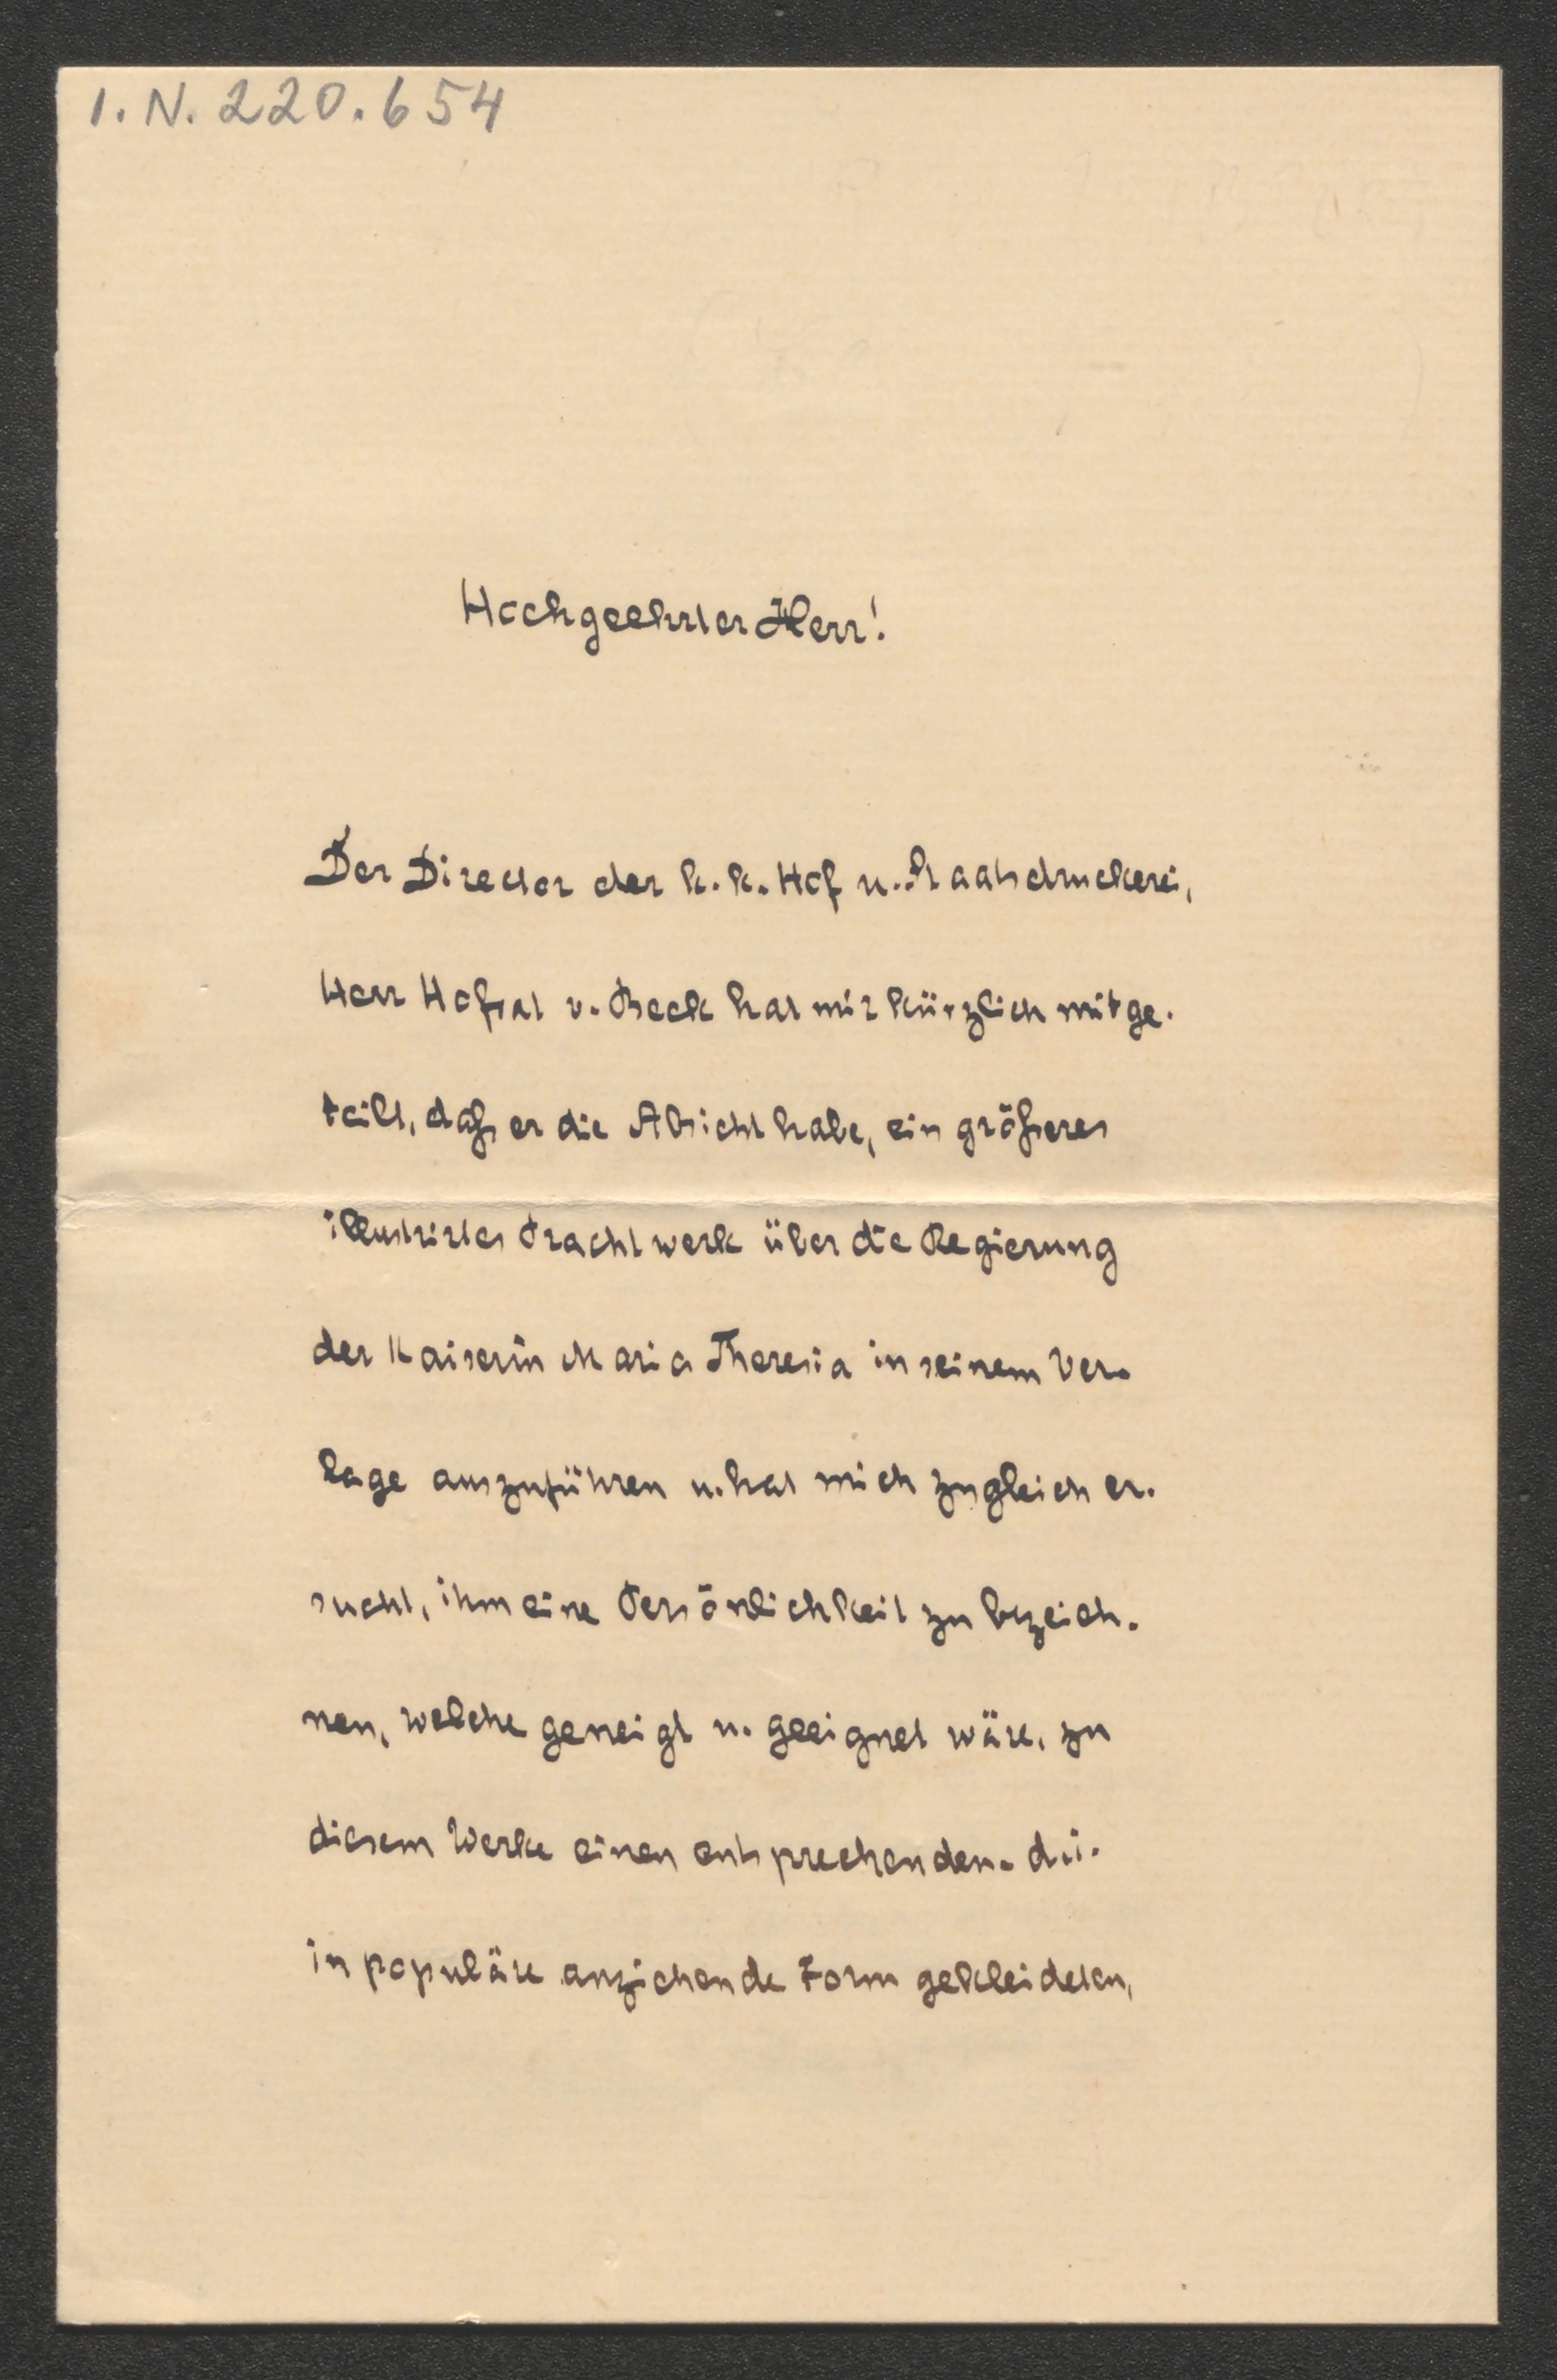 I.N. 220.654
Hochgeehrter Herr!
Der Director der k. k. Hof u. Staatsdruckerei,
Herr Hofrat v. Beck hat mir kürzlich mitge-
teilt, daß er die Absicht habe, ein größeres
illustrirtes Prachtwerk über die Regierung
der Kaiserin Maria Theresia in seinem Ver-
lage auszuführen u. hat mich zugleich er-
sucht, ihm eine Persönlichkeit zu bezeich-
nen, welche geneigt u. geeignet wäre, zu
diesem Werke einen entsprechenden d. i.
in populäre anziehende Form gekleideten,